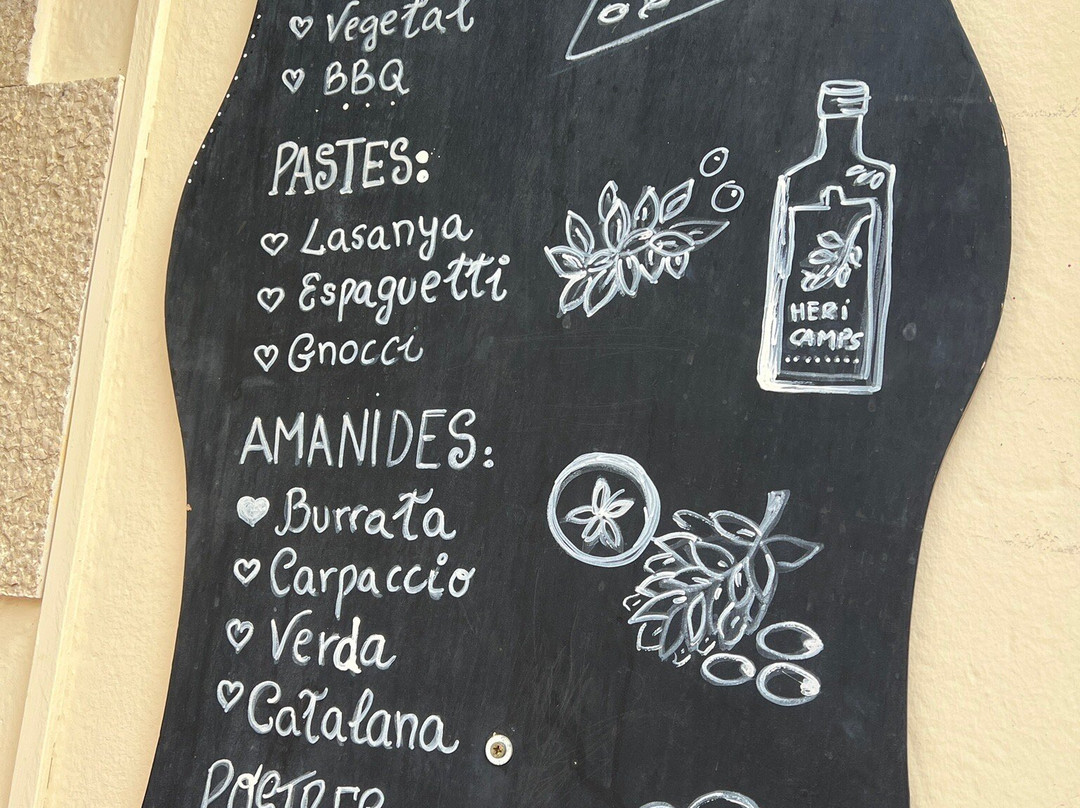 Vegetal
BBQ
PASTES:
Lasanya
Espaguetti
Gnocci
HERI
CAMPS
AMANIDES:
Burrata
Carpaccio
Verda
Catalana
POSTRES